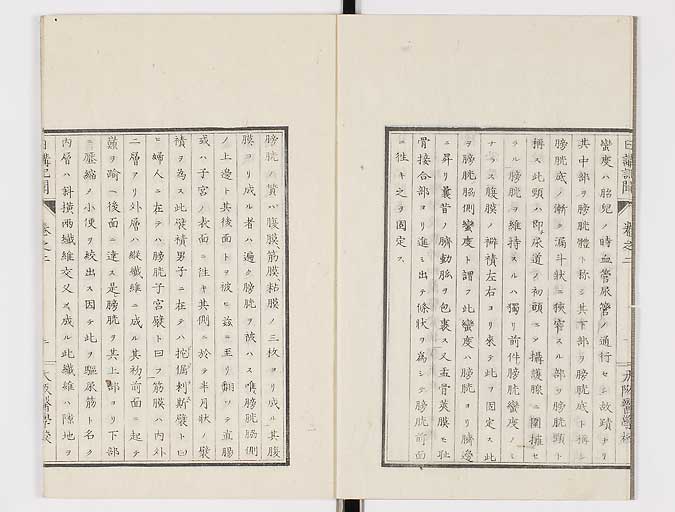 日講記聞 卷之二 大阪醫學校
蠻度ハ胎兒ノ時血管尿管ノ通行セシ故蹟ナリ
其中部ヲ膀胱體ト称シ其下部ヲ膀胱底ト稱シ
膀胱底ノ漸ク漏斗狀ニ狹窄スル部ヲ膀胱頸ト
稱ス此頸ハ即尿道ノ初頭ニシテ攝護腺ニ圍擁セ
ラル膀胱ヲ維持スルハ獨リ前件膀胱蠻度ノミ
ナラス腹膜ノ襞積左右ヨリ來テ此ヲ固定ス此
ヲ膀胱胱側蠻度ト謂フ此蠻度ハ膀胱ヨリ臍邊
ニ昇リ曩昔ノ臍動脈ヲ包裹ス又盂骨莢膜モ耻
骨接合部ヨリ進ミ出テ條狀ヲ為シテ膀胱前面
ニ徃キ之ヲ固定ス
膀胱ノ質ハ腹膜筋膜粘膜ノ三枚ヨリ成ル其腹
膜ヨリ成ル者ハ遍ク膀胱ヲ被ハス唯膀胱胱側
ノ上邊ト其後面トヲ被ヒ玆ニ至リ翻ツテ直腸
或ハ子宮ノ表面ニ徃キ其側ニ於テ半月狀ノ襞
積ヲ為ス此襞積男子ニ在テハ陀倔剌斯襞ト曰
ヒ婦人ニ在テハ膀胱子宮襞ト曰フ筋膜ハ内外
二層アリ外層ハ縱纖維ニ成ル其初前面ニ起テ
巔ヲ踰ヘ後面ニ達ス是膀胱ヲ其上部ヨリ下部
ニ壓縮ノ小便ヲ絞出ス因テ此ヲ驅尿筋ト名ク
内層ハ斜横兩纖維交叉ス成ル此纖維ハ隙地ヲ
日講記聞 卷之二 大阪醫學校